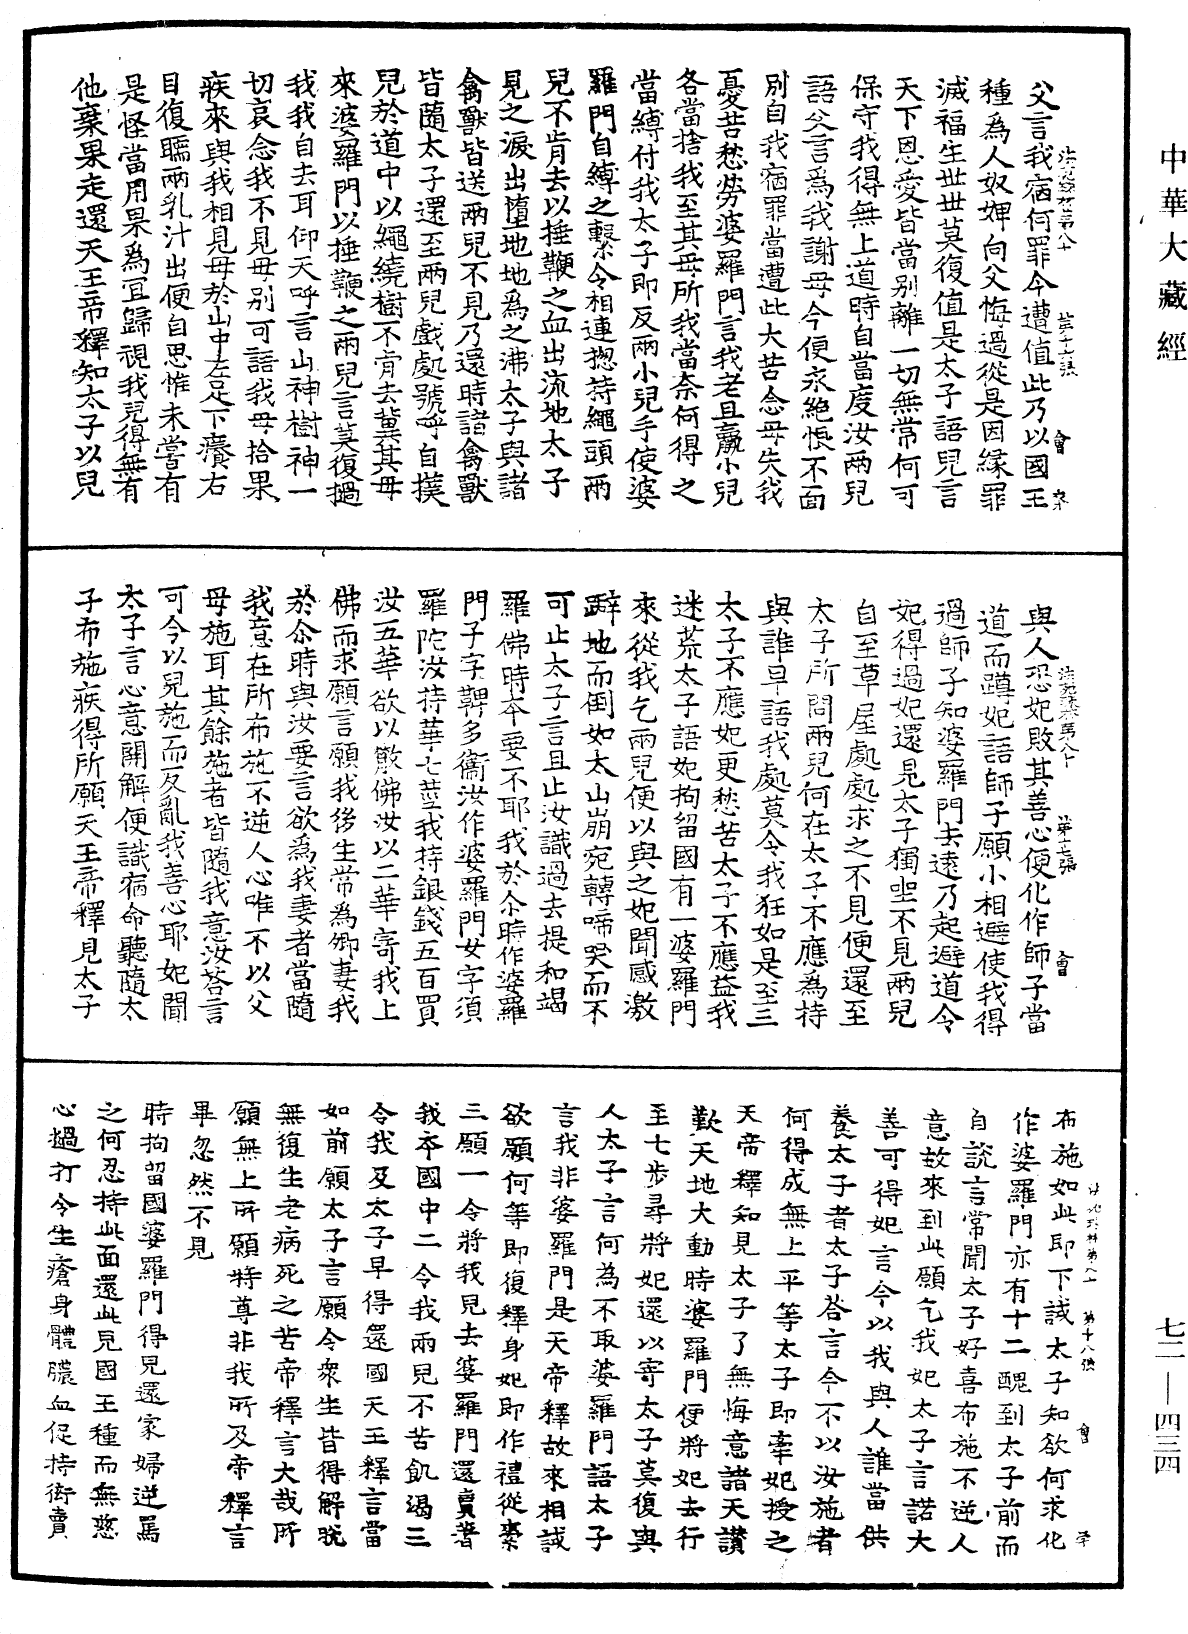 中華大藏經
父言我病何罪今遭值此乃以國王
種爲人奴婢向父悔過從是因緣罪
滅福生世世莫復值是太子語兒言
天下恩愛皆當別離一切無常何可
保守我得無上道時自當度汝兩兒
語父言爲我謝母今便永絕恨不面
別自我宿罪當遭此大苦念母失我
憂苦愁勞婆羅門言我老且羸小兒
各當捨我至其母所我當奈何得之
當縛付我太子即反兩小兒手使婆
羅門自縛之繫令相連揔持繩頭兩
兒不肯去以捶鞭之血出流地太子
見之淚出墮地地爲之沸太子與諸
禽獸皆送兩兒不見乃還時諸禽獸
皆隨太子還至兩兒戲處號呼自撲
兒於道中以繩繞樹不肯去冀其母
來婆羅門以捶鞭之兩兒言莫復撾
我我自去耳仰天呼言山神樹神一
切哀念我不見母別可語我母捨果
疾來與我相見母於山中左足下癢右
目復瞤兩乳汁出便自思惟未嘗有
是怪當用果爲宜歸視我兒得無有
他棄果走還天王帝釋知太子以兒
與人恐妃敗其善心便化作師子當
道而蹲妃語師子願小相避使我得
過師子知婆羅門去遠乃起避道令
妃得過妃還見太子獨坐不見兩兒
自至草屋處處求之不見便還至
太子所問兩兒何在太子不應爲持
與誰早語我處莫令我狂如是至三
太子不應妃更愁苦太子不應益我
迷荒太子語妃拘留國有一婆羅門
來從我乞兩兒便以與之妃聞感激
躃地而倒如太山崩宛轉啼哭而不
可止太子言且止汝識過去提和竭
羅佛時本要不耶我於尒時作婆羅
門子字鞞多衞汝作婆羅門女字須
羅陀汝持華七莖我持銀錢五百買
汝五華欲以散佛汝以二華寄我上
佛而求願言願我後生常爲卿妻我
於尒時與汝要言欲爲我妻者當隨
我意在所布施不逆人心唯不以父
母施耳其餘施者皆隨我意汝荅言
可今以兒施而反亂我善心耶妃聞
太子言心意開解便識宿命聽隨太
子布施疾得所願天王帝釋見太子
布施如此即下試太子知欲何求化
作婆羅門亦有十二醜到太子前而
自說言常聞太子好喜布施不逆人
意故來到此願乞我妃太子言諾大
善可得妃言今以我與人誰當供
養太子者太子荅言今不以汝施者
何得成無上平等太子即牽妃授之
天帝釋知見太子了無悔意諸天讚
歎天地大動時婆羅門便將妃去行
至七步尋將妃還以寄太子莫復與
人太子言何爲不取婆羅門語太子
言我非婆羅門是天帝釋故來相試
欲願何等即復釋身妃即作禮從索
三願一令將我兒去婆羅門還賣著
我本國中二令我兩兒不苦飢渴三
令我及太子早得還國天王釋言當
如前願太子言願令衆生皆得解脫
無復生老病死之苦帝釋言大哉所
願無上所願特尊非我所及帝釋言
畢忽然不見
時拘留國婆羅門得兒還家婦逆罵
之何忍持此面還此兒國王種而無慈
心撾打令生瘡身體膿血促持衒賣
七二—四三四